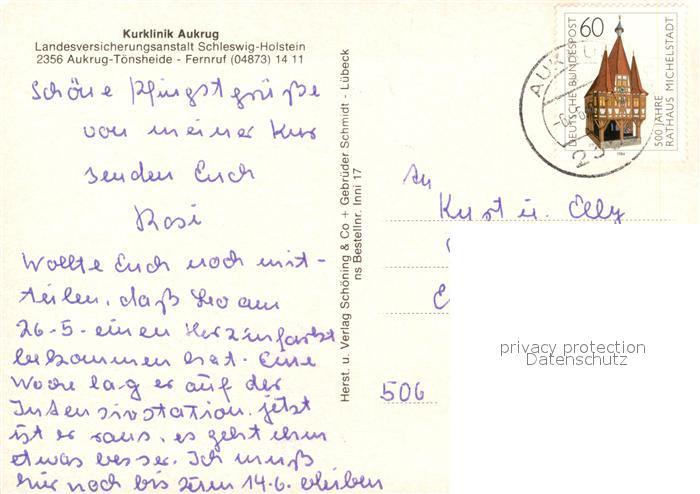 Kurklinik Aukrug
Landesversicherungsanstalt Schleswig-Holstein
2356 Aukrug-Tönsheide - Fernruf (04873) 14 11
Schöne Pfingstgrüße
von meiner Kur
senden Euch
Rosi
Wollte Euch noch mit-
teilen, daß Leo am
26-5- einen Herzinfarkt
bekommen hat. Eine
Woche lag er auf der
Intensivstation. jetzt
ist er raus. es geht ihm
etwas besser. Ich muß
hier noch bis zum 14.6. bleiben
Herst. u. Verlag Schöning & Co + Gebrüder Schmidt · Lübeck
ns Bestellnr. Inni 17
DEUTSCHE BUNDESPOST
60
500 JAHRE
RATHAUS MICHELSTADT
1984
An
Kurt u. Elly
506
privacy protection
Datenschutz